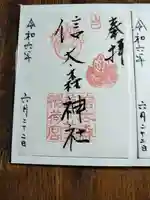 令和六年
六月二十二日
奉拝
信太森神社
令和六年
六月二十二日